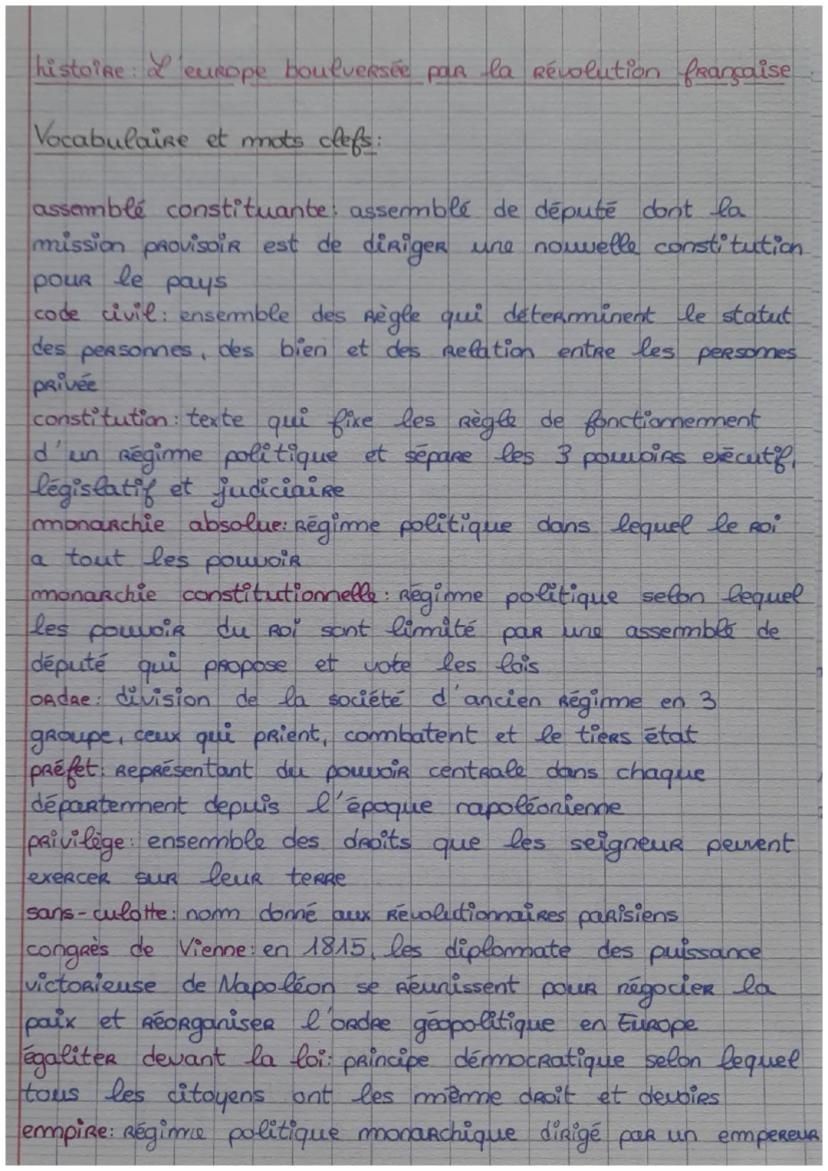 histoire : L'europe boulversée par la révolution française
Vocabulaire et mots clefs :
assemblé constituante : assemblé de député dont la
mission provisoir est de diriger une nouvelle constitution
pour le pays
code civil : ensemble des règle qui déterminent le statut
des personnes, des bien et des relation entre les personnes
privée
constitution : texte qui fixe les règle de fonctionnement
d'un régime politique et sépare les 3 pouvoirs exécutif,
législatif et judiciaire
monarchie absolue : régime politique dans lequel le roi
a tout les pouvoir
monarchie constitutionnelle : régime politique selon lequel
les pouvoir du roi sont limité par une assemblé de
député qui propose et vote les lois
ordre : division de la société d'ancien régime en 3
groupe, ceux qui prient, combatent et le tiers état
préfet : représentant du pouvoir centrale dans chaque
département depuis l'époque napoléonienne
privilège : ensemble des droits que les seigneur peuvent
exercer sur leur terre
sans-culotte : nom donné aux révolutionnaires parisiens
congrès de Vienne : en 1815, les diplomate des puissance
victorieuse de Napoléon se réunissent pour négocier la
paix et réorganiser l'ordre géopolitique en Europe
égaliter devant la loi : principe démocratique selon lequel
tous les citoyens ont les même droit et devoirs
empire : régime politique monarchique dirigé par un empereur